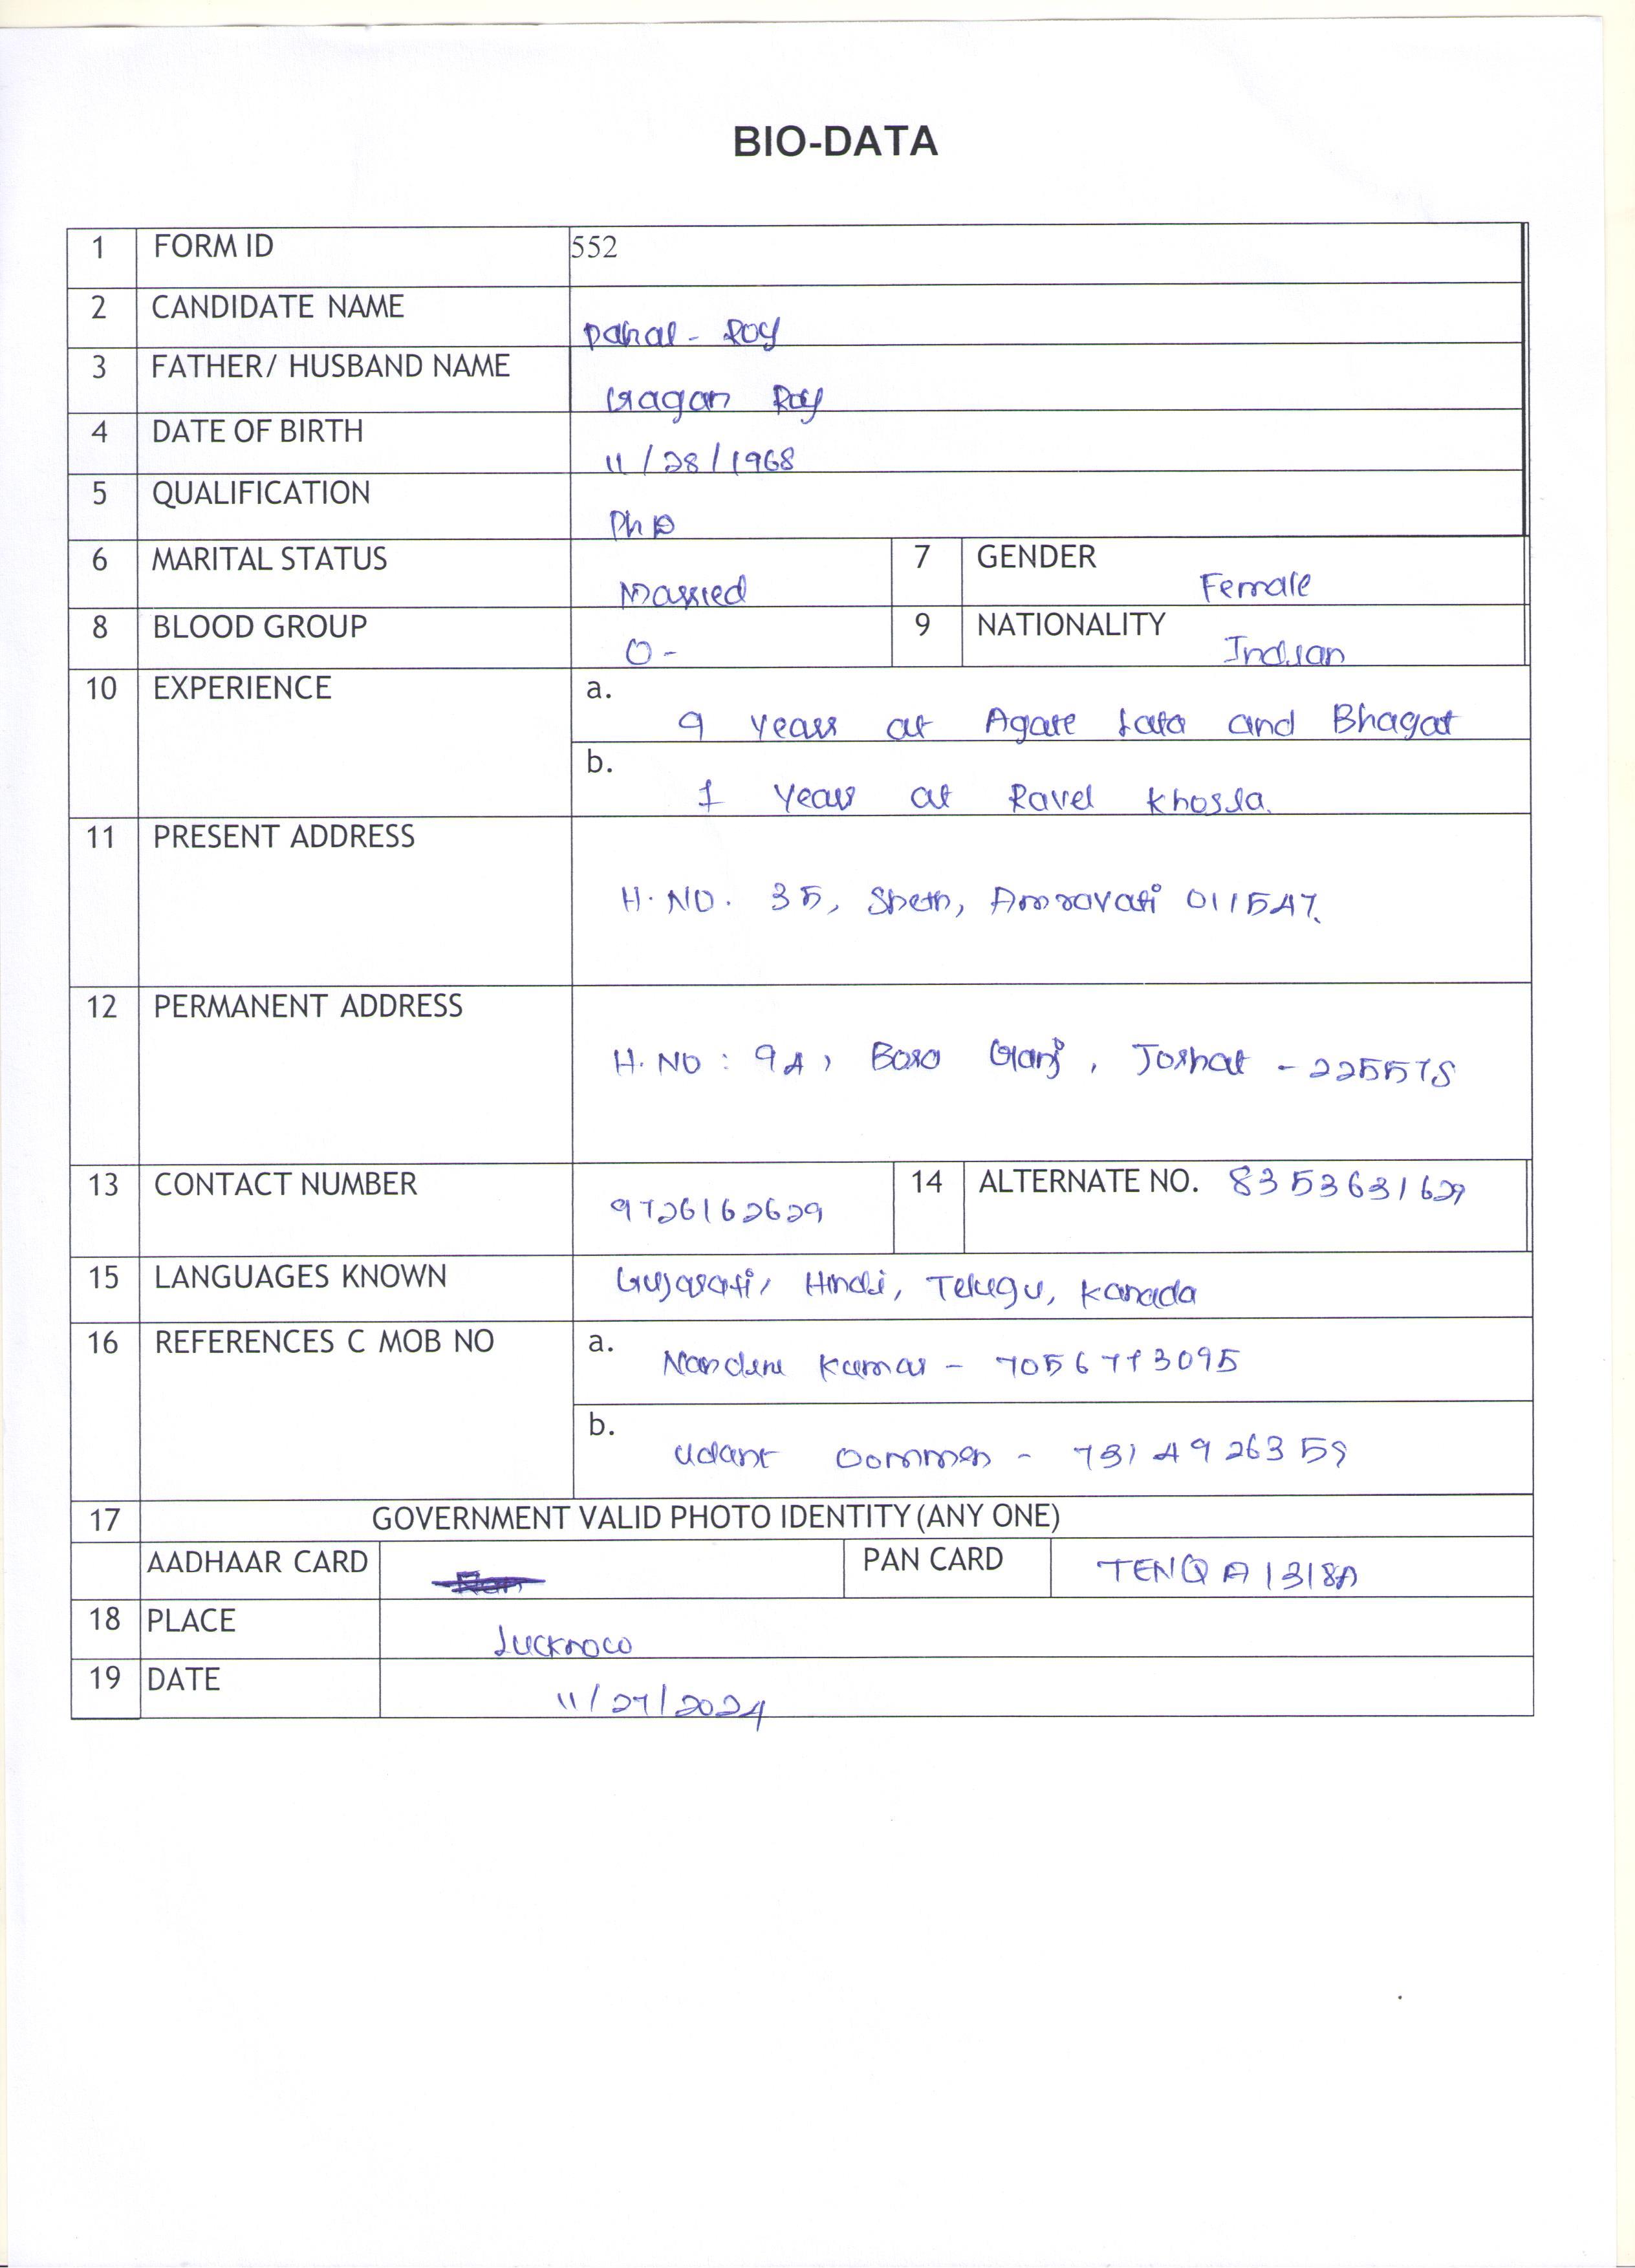 BIO-DATA
1 FORM ID 552
2 CANDIDATE NAME Pahal - Roy
3 FATHER/ HUSBAND NAME Gagan Roy
4 DATE OF BIRTH 11/28/1968
5 QUALIFICATION PhD
6 MARITAL STATUS Married 7 GENDER Female
8 BLOOD GROUP O- 9 NATIONALITY Indian
10 EXPERIENCE a. 9 years at Agate Lata and Bhagat
b. 1 years at Ravel Khosla.
11 PRESENT ADDRESS H.NO. 35, Sheth, Amravati 011547.
12 PERMANENT ADDRESS H.NO: 94, Bora Ganj, Jorhat - 225578
13 CONTACT NUMBER 9726162629 14 ALTERNATE NO. 8353631629
15 LANGUAGES KNOWN Gujarati, Hindi, Telugu, Kanada
16 REFERENCES C MOB NO a. Kumar - 7056773095
b. Udant Oommen - 7314926359
17 GOVERNMENT VALID PHOTO IDENTITY (ANY ONE)
AADHAAR CARD PAN CARD TENQA1318A
18 PLACE Lucknow
19 DATE 11/27/2024